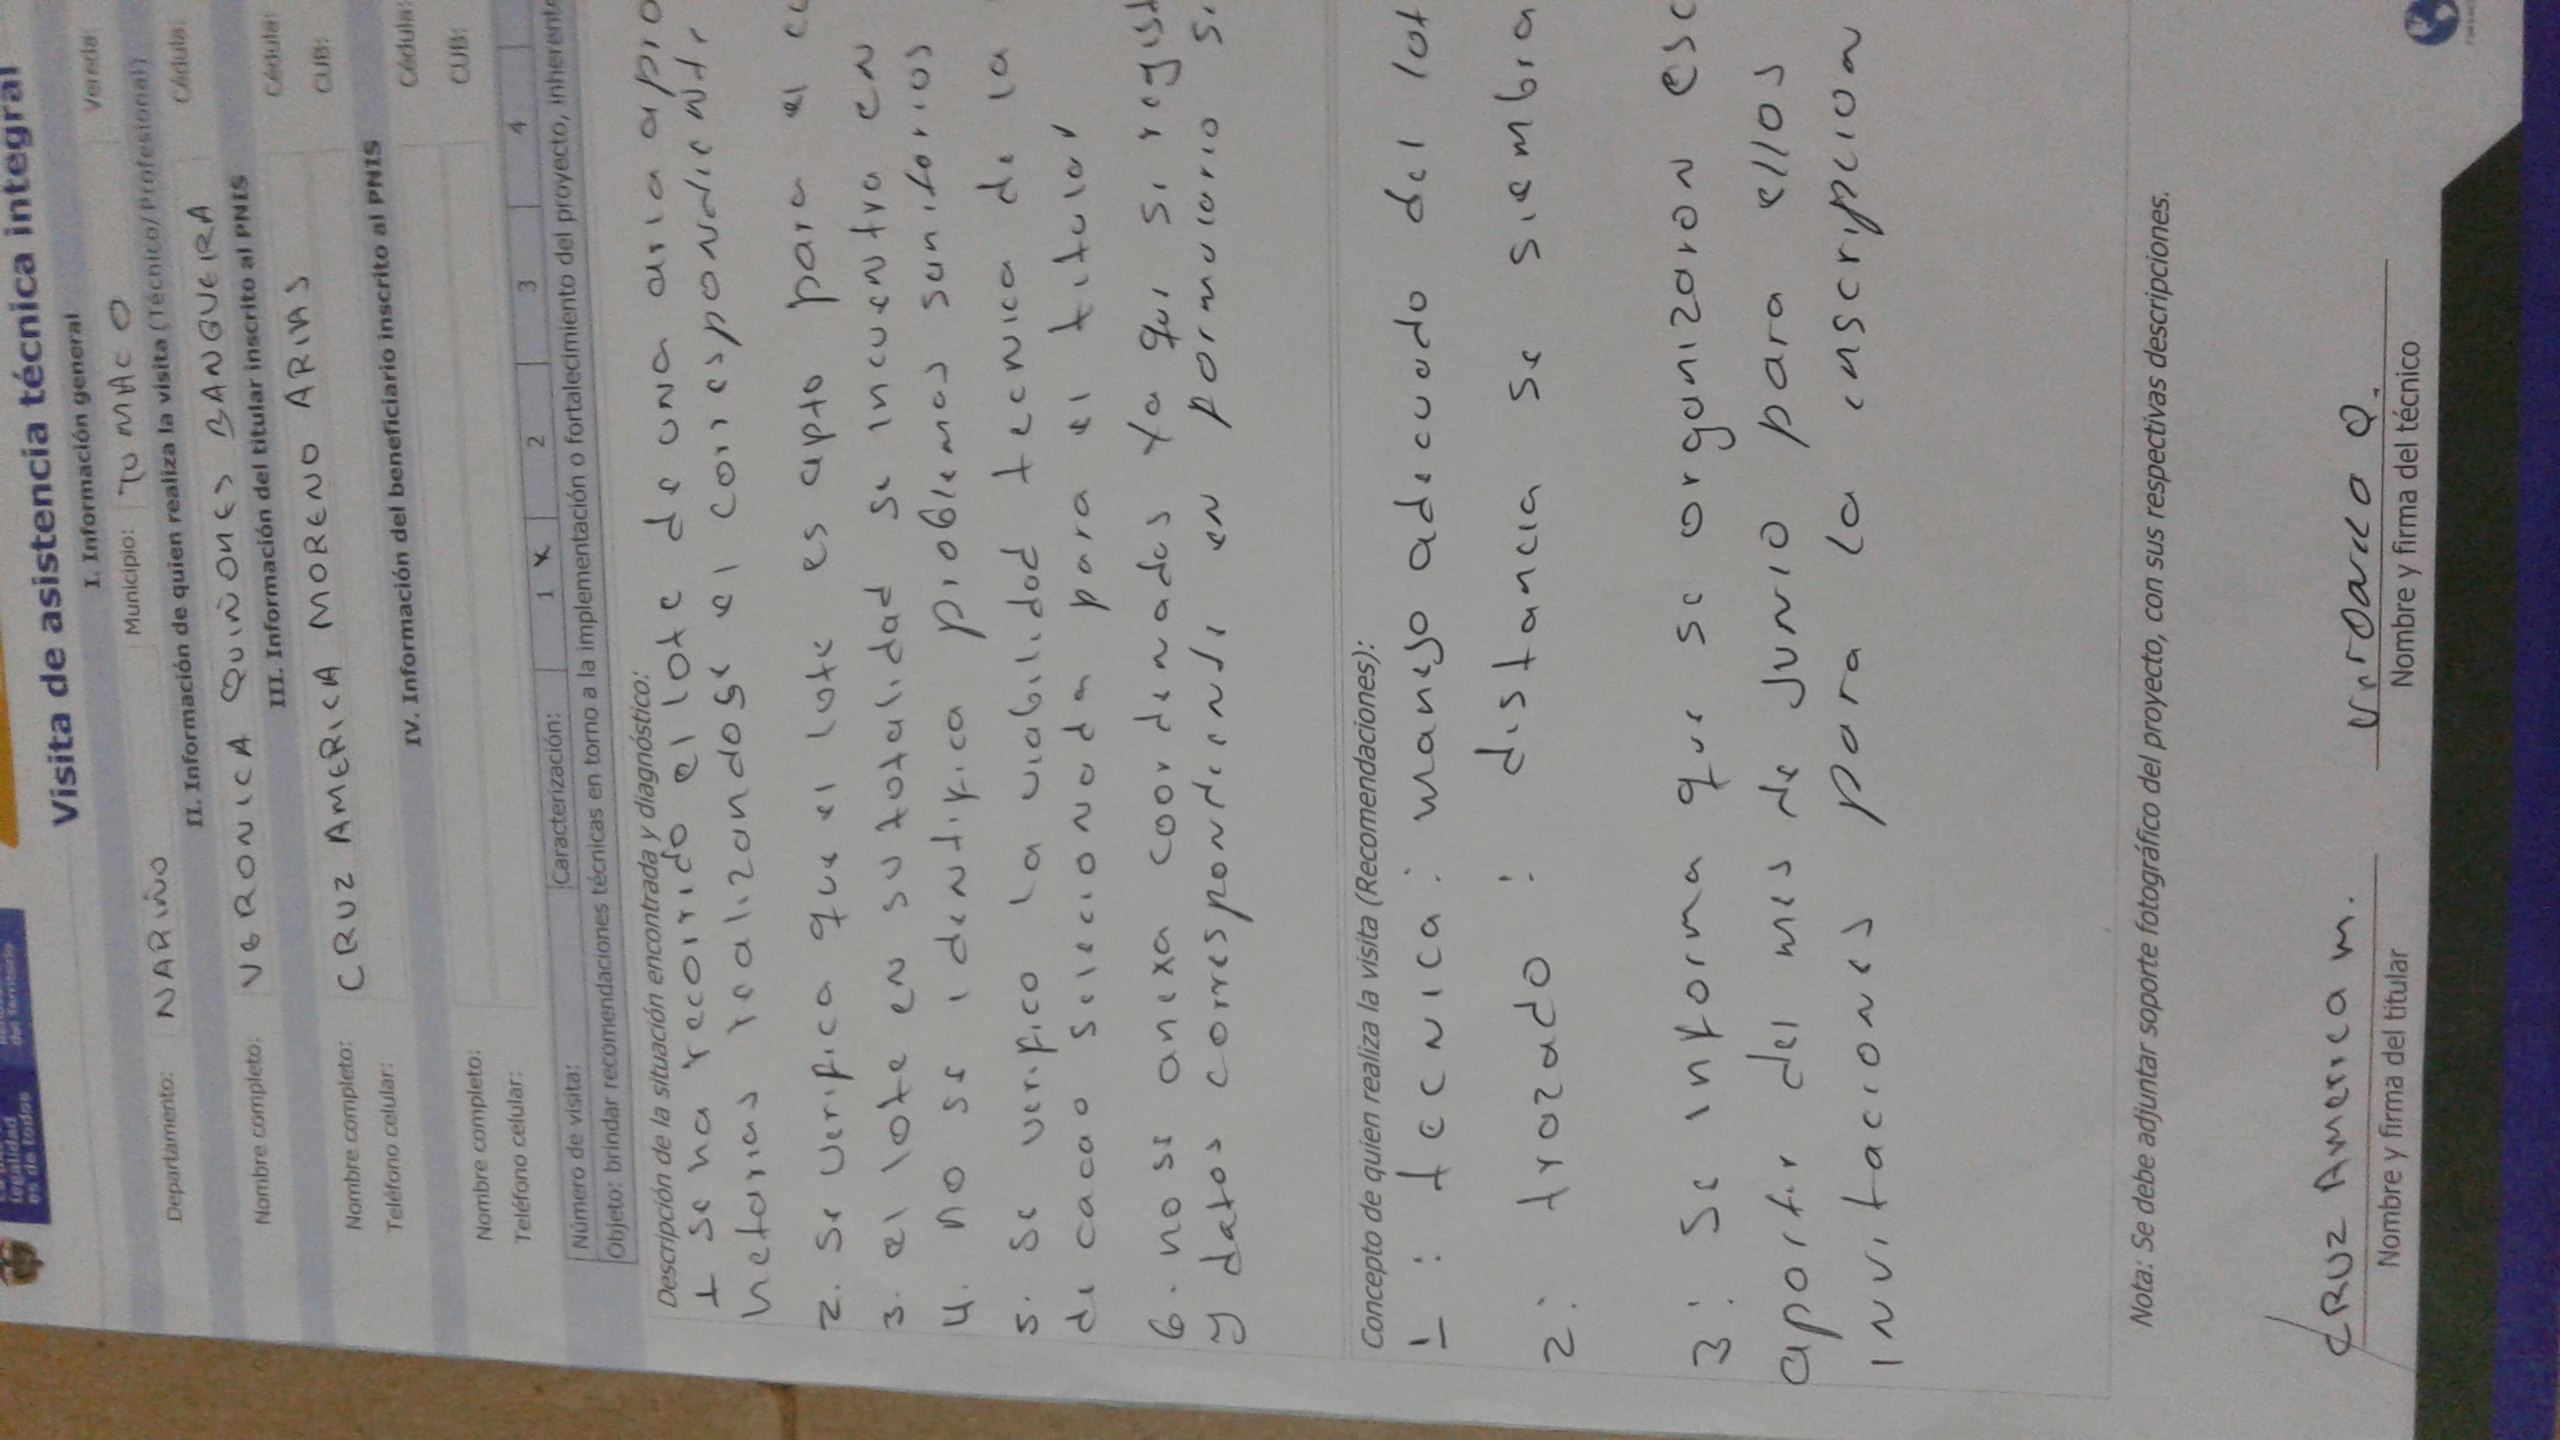 legalidad
es de todos
Visita de asistencia técnica integral
I. Información general
Departamento: NARIÑO Municipio: TUMACO Vereda:
II. Información de quien realiza la visita (Técnico/Profesional)
Nombre completo: VERONICA QUIÑONES BANGUERA Cédula:
III. Información del titular inscrito al PNIS
Nombre completo: CRUZ AMERICA MORENO ARIAS Cédula:
Teléfono celular: CUB:
IV. Información del beneficiario inscrito al PNIS
Nombre completo: Cédula:
Teléfono celular: CUB:
Número de visita: Caracterización: 1 X 2 3 4
Objeto: brindar recomendaciones técnicas en torno a la implementación o fortalecimiento del proyecto, inherente
Descripción de la situación encontrada y diagnóstico:
1 se ha recorrido el lote de una aria apro
hetarias realizandose el correspondiente
2. se verifica que el lote es apto para el
3. el lote en su totalidad se incuentra en
4. no se identifica problemas sanitarios
5. se verifico la viabilidad tecnica de la
de cacao selecionada para el titular
6. no se anexa coordenadas ya que se regist
y datos correspondiente en formulario
Concepto de quien realiza la visita (Recomendaciones):
1: tecnica: manejo adecuado del lot
2: trazado: distancia se siembra
3: se informa que se organizaron esc
apartir del mes de Junio para ellos
invitaciones para la inscripcion
Nota: Se debe adjuntar soporte fotográfico del proyecto, con sus respectivas descripciones.
CRUZ America m.
Nombre y firma del titular Nombre y firma del técnico